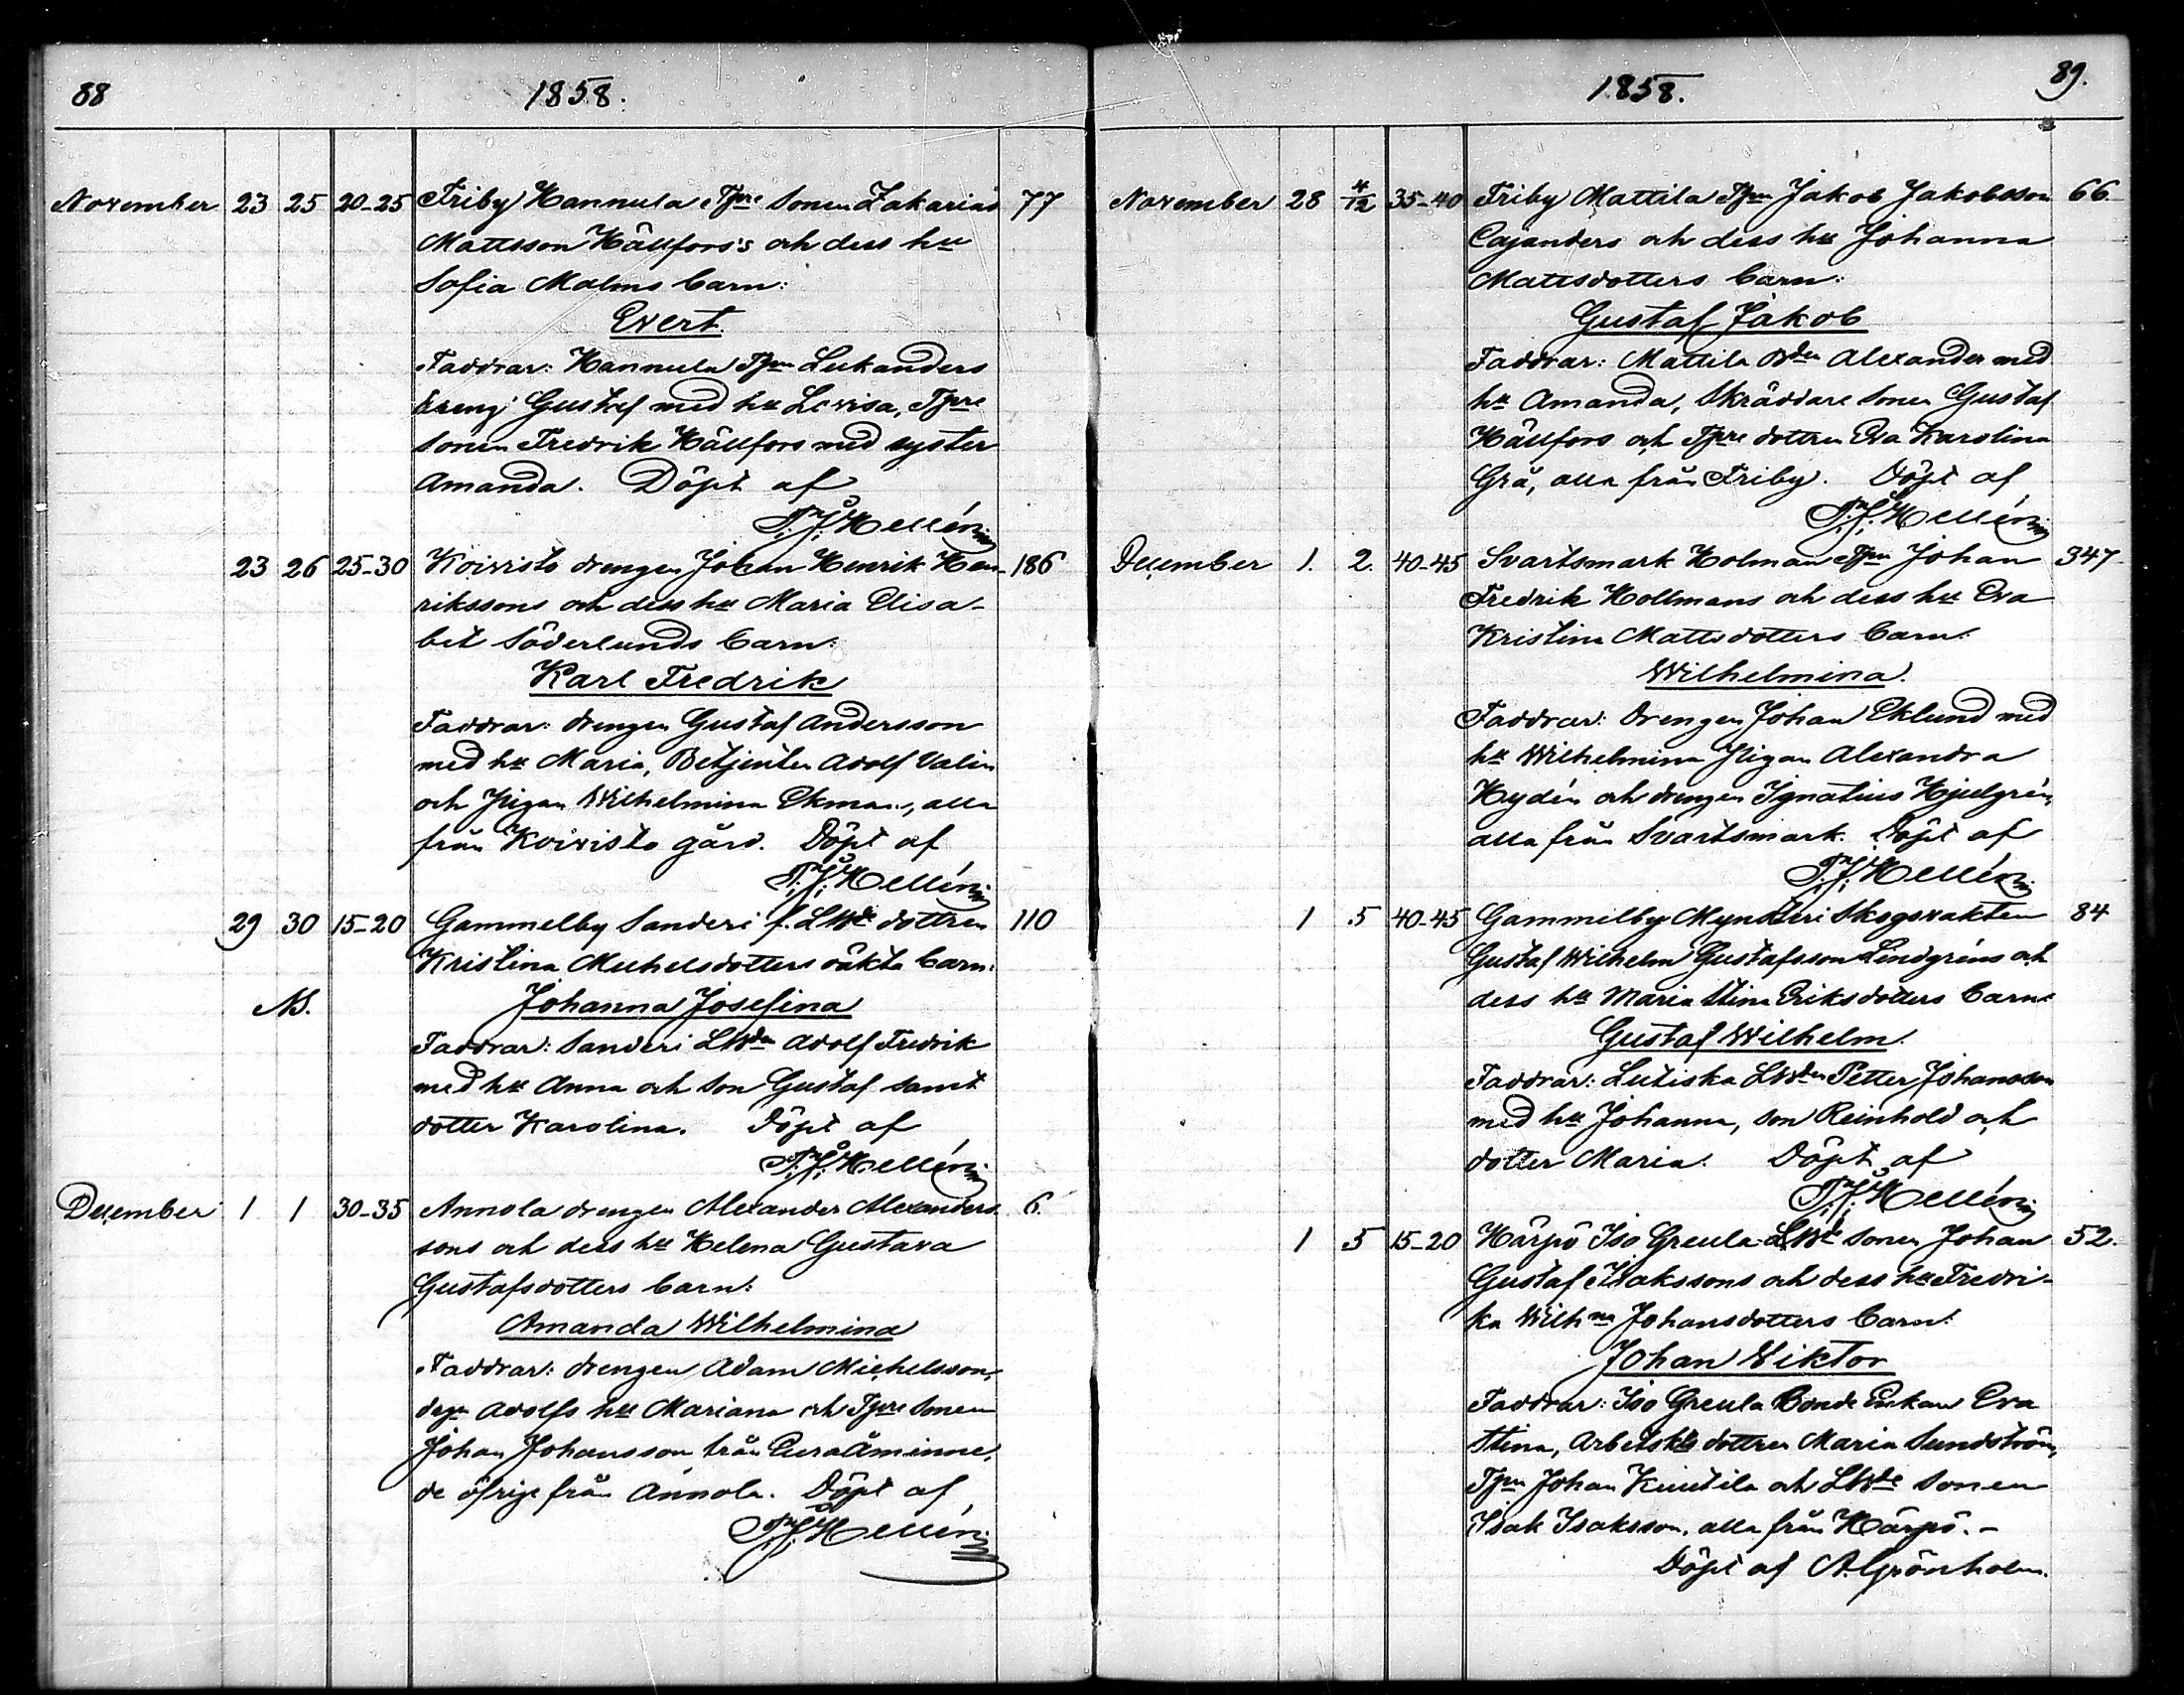 88
1858.
November 23 25 20-25 Friby Hannula Tpre sonen Zakarias 77
Mattsson Hällfors's och dess hu
Sofia Malms barn:
Evert
Faddrar: Hannula Tpn Lukanders
dreng Gustaf med hu Lovisa, Tpre
sonen Fredrik Hällfors med syster
Amanda. Döpt af
F. J. Hellén
23 26 25-30 Koivisto drengen Johan Henrik Hen- 186
rikssons och dess hu Maria Elisa-
bet Söderlunds barn:
Karl Fredrik
Faddrar: drengen Gustaf Andersson
med hu Maria, Betjenten Adolf Valin
och pigan Wilhelmina Ekman, alla
från Koivisto gård. Döpt af
F. J. Hellén
29 30 15-20 Gammelby Sanderi f. Lbde dottren 110
Kristina Michelsdotters oäkta barn:
Nb. Johanna Josefina
Faddrar: Sanderi Lbden Adolf Fredrik
med hu Anna och son Gustaf samt
dotter Karolina. Döpt af
F. J. Hellén
December 1 1 30-35 Annola drengen Alexander Alexanders- 6.
sons och dess hu Helena Gustava
Gustafsdotters barn:
Amanda Wilhelmina
Faddrar: drengen Adam Michelsson,
dgn Adolfs hu Mariana och Tpre sonen
Johan Johansson från Eura Åminne,
de öfrige från Annola. Döpt af
F. J. Hellén
1858.
89.
November 28 4/12 35-40 Friby Mattila Tpn Jakob Jakobsson 66
Cajanders och dess hu Johanna
Mattsdotters barn:
Gustaf Jakob
Faddrar: Mattila Bden Alexander med
hu Amanda, Skräddare sonen Gustaf
Hällfors och Tpre dottren Eva Karolina
Grå, alla från Friby. Döpt af
F. J. Hellén
December 1. 2. 40-45 Svartsmark Holman Tpn Johan 347
Fredrik Hollmans och dess hu Eva
Kristina Mattsdotters barn:
Wilhelmina.
Faddrar: Drengen Johan Eklund med
hu Wilhelmina Pigan Alexandra
Hydén och drengen Ignatius Hjelgrén,
alla från Svartsmark. Döpt af
F. J. Hellén
1 5 40-45 Gammelby Mynsteri Skogsvakten 84
Gustaf Wilhelm Gustafsson Lindgréns och
dess hu Maria Stina Eriksdotters barn:
Gustaf Wilhelm.
Faddrar: Lutiska Lbden Petter Johansson
med hu Johanna, son Reinhold och
dotter Maria. Döpt af
F. J. Hellén
1 5 15-20 Härpö Iso Greula Lbde sonen Johan 52.
Gustaf Isakssons och dess hu Fredri-
ka Wilhna Johansdotters barn:
Johan Viktor
Faddrar: Iso Greula Bonde Enkan Eva
Stina, Arbetsk:ls dottren Maria Sundström,
Tpn Johan Kuutila och Lbde sonen
Isak Isaksson, alla från Härpö.-
Döpt af A. Grönholm.